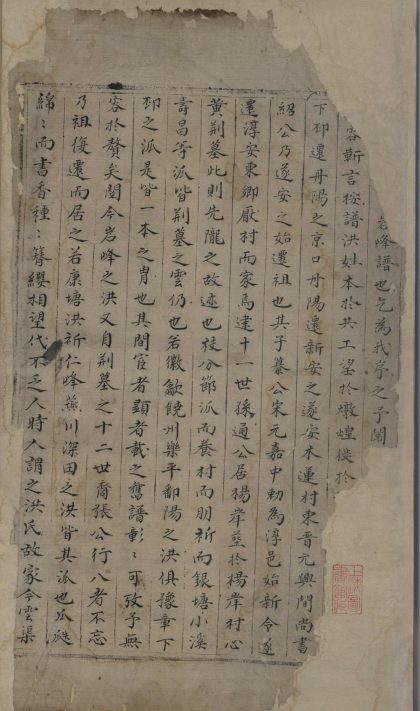 岩峰譜也乞為我序之予閱
容靳言按譜洪姓本於共工望於燉煌徙於
下邳遷丹陽之京口丹陽遷新安之遂安木蓮村東晋元興間尚書
紹公乃遂安之始遷祖也其子纂公宋元嘉中勅為淳邑始新令遂
遷淳安東鄉厭村而家焉逮十一世孫通公居楊岸塟於楊岸村心
黄荆墓此則先隴之故迹也枝分節派而養村而朋祈而銀塘小溪
壽昌等派皆荆墓之雲仍也若徽歙饒州樂平鄱陽之洪俱豫章下
邳之派是皆一本之胄也其間官者顯者載之舊譜彰〻可攷予無
容於贅矣閱今岩峰之洪又自荆墓之十二世裔張公行八者不忘
乃祖復還而居之若康塘洪祈仁峰燕川深田之洪皆其派也瓜瓞
綿〻而書香種〻簪纓相望代不乏人時人謂之洪氏故家今雲渠